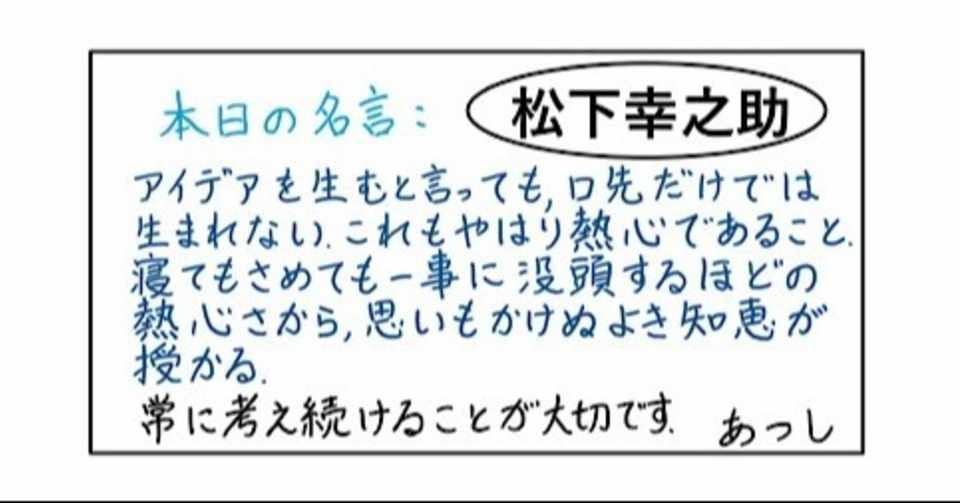 本日の名言: 松下幸之助
アイデアを生むと言っても,口先だけでは
生まれない.これもやはり熱心であること.
寝てもさめても一事に没頭するほどの
熱心さから,思いもかけぬよき知恵が
授かる.
常に考え続けることが大切です.
あっし